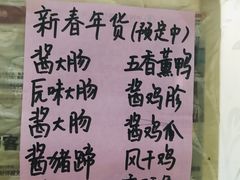 新春年货(预定中)
酱大肠 五香薰鸭
卤味大肠 酱鸡胗
酱大肠 酱鸡爪
酱猪蹄 风干鸡